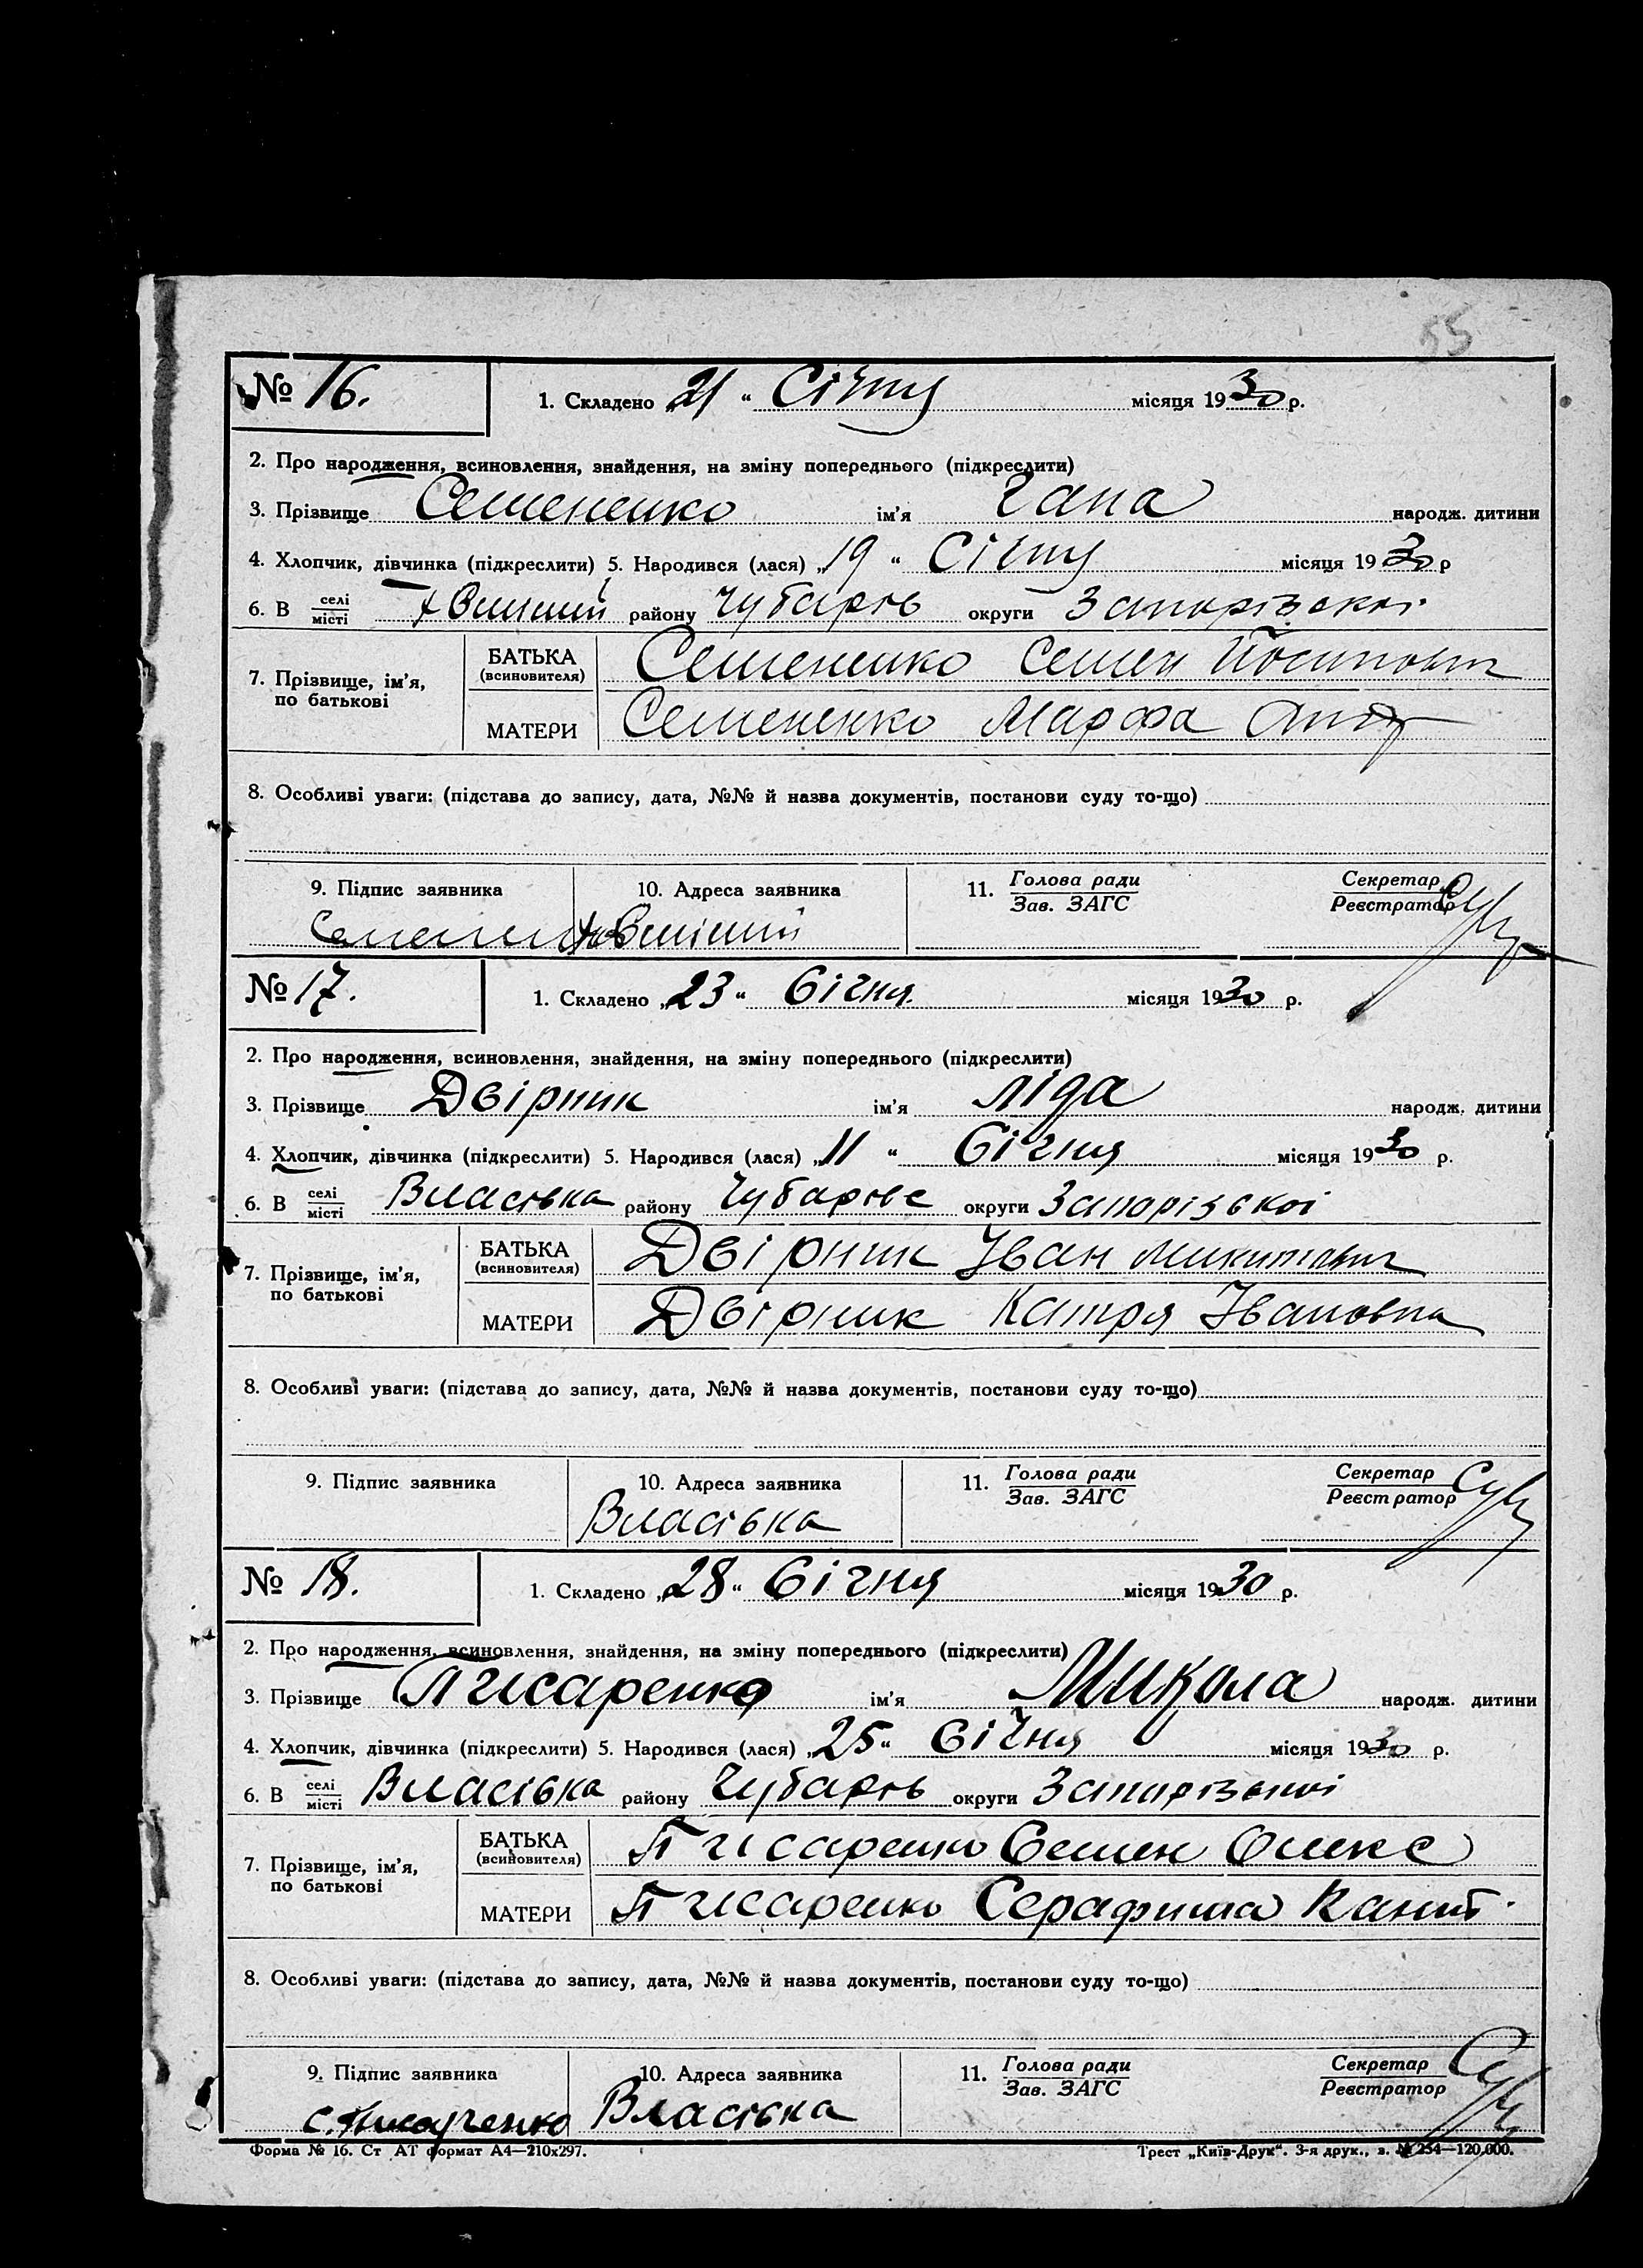 55
№ 16. 1. Складено „21 “ Січня місяця 1930 р.
2. Про народження, всиновлення, знайдення, на зміну попереднього (підкреслити)
3. Прізвище Семененко ім'я Гана народж. дитини
4. Хлопчик, дівчинка (підкреслити) 5. Народився (лася) „19 “ Січня місяця 1930 р
6. В селі місті району Чубарів округи Запорізскоі
7. Прізвище, ім'я, по батькові
БАТЬКА (всиновителя) Семененко Семен Йосипович
МАТЕРИ Семененко Марфа
8. Особливі уваги: (підстава до запису, дата, №№ й назва документів, постанови суду то-що)
9. Підпис заявника 10. Адреса заявника 11. Голова ради Зав. ЗАГС Секретар Реєстратор
№ 17. 1. Складено „23 “ Січня. місяця 1930 р.
2. Про народження, всиновлення, знайдення, на зміну попереднього (підкреслити)
3. Прізвище Двірник ім'я Ліда народж. дитини
4. Хлопчик, дівчинка (підкреслити) 5. Народився (лася) „11 “ Січня місяця 1930 р.
6. В селі місті Власівка району Чубарівс округи Запорізскоі
7. Прізвище, ім'я, по батькові
БАТЬКА (всиновителя) Двірник Іван Микитович
МАТЕРИ Двірник Катря Івановна
8. Особливі уваги: (підстава до запису, дата, №№ й назва документів, постанови суду то-що)
9. Підпис заявника 10. Адреса заявника 11. Голова ради Зав. ЗАГС Секретар Реєстратор
Власівка
№ 18. 1. Складено „28 “ Січня місяця 1930 р.
2. Про народження, всиновлення, знайдення, на зміну попереднього (підкреслити)
3. Прізвище Писаренко ім'я Микола народж. дитини
4. Хлопчик, дівчинка (підкреслити) 5. Народився (лася) „25 “ Січня місяця 1930 р.
6. В селі місті Власівка району Чубарів округи Запорізскоі
7. Прізвище, ім'я, по батькові
БАТЬКА (всиновителя) Писаренко Семен Олекс
МАТЕРИ Писаренко Серафима
8. Особливі уваги: (підстава до запису, дата, №№ й назва документів, постанови суду то-що)
9. Підпис заявника 10. Адреса заявника 11. Голова ради Зав. ЗАГС Секретар Реєстратор
Власівка
Форма № 16. Ст АТ формат А4—210х297. Трест „Київ-Друк“. 3-я друк., з. № 254—120.000.